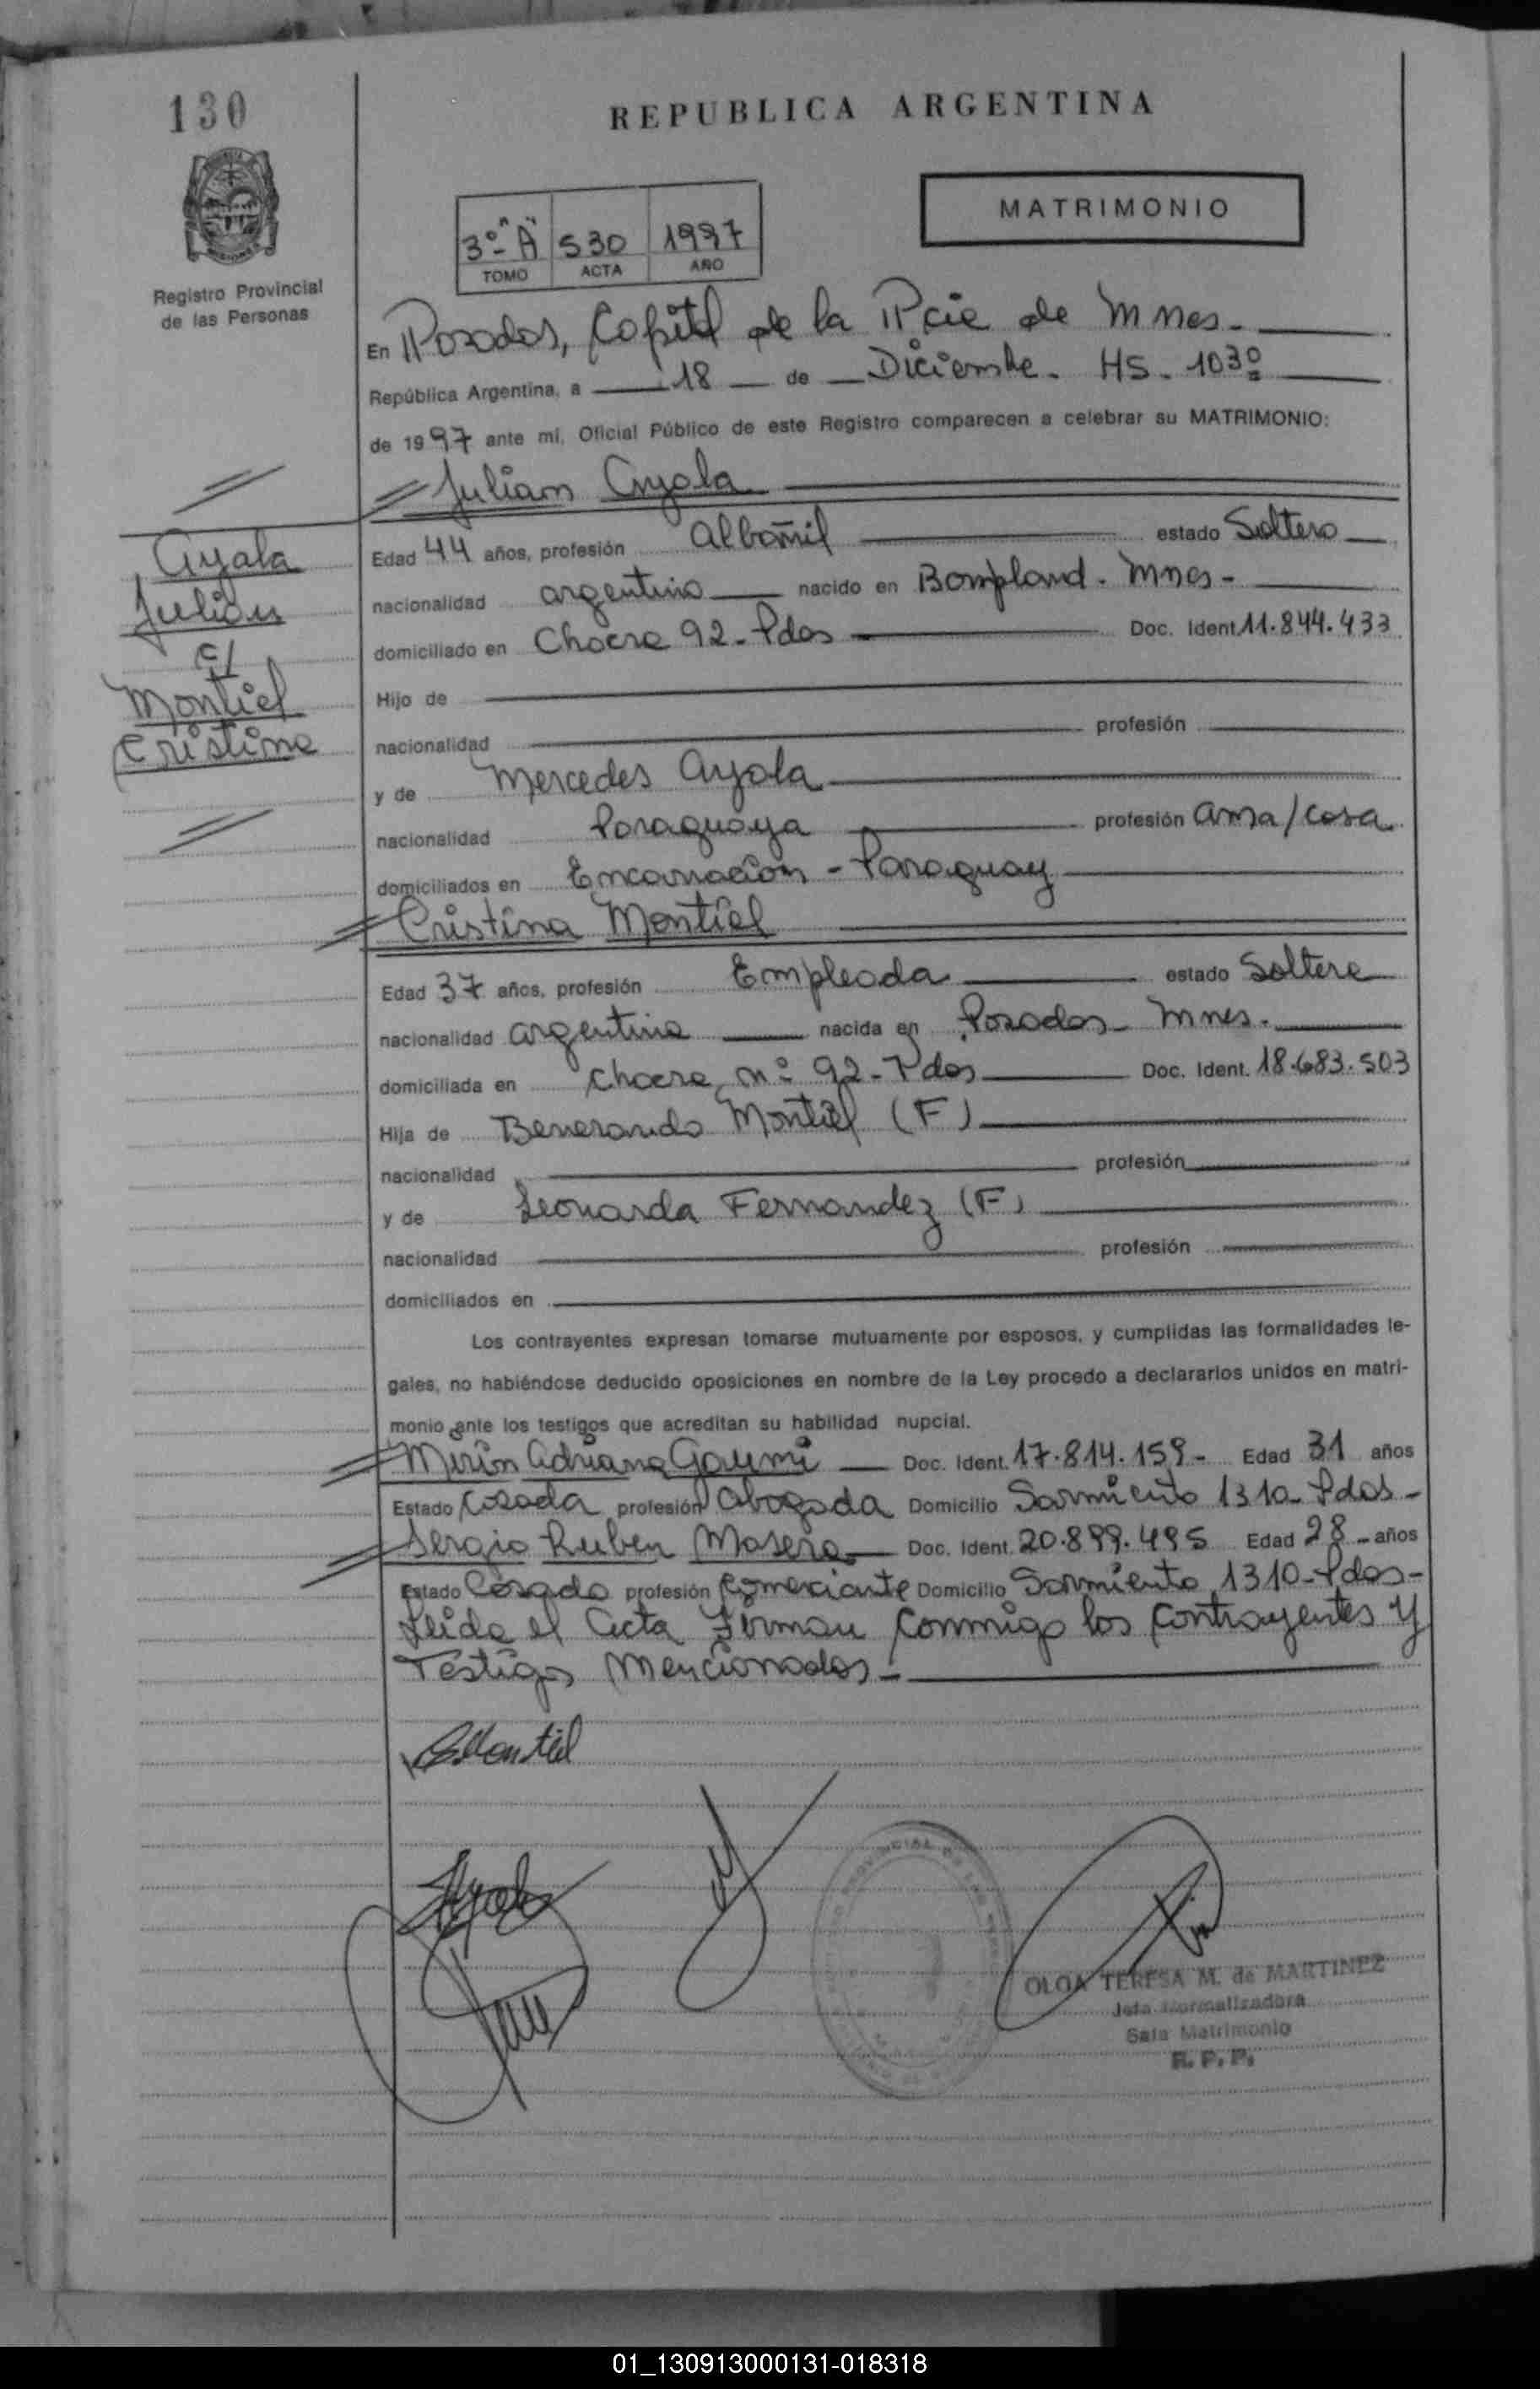 130
REPUBLICA ARGENTINA
MATRIMONIO
3º "A" 530 1997
TOMO ACTA AÑO
Registro Provincial
de las Personas
En Posadas, Capital de la Pcia de Mnes.
República Argentina, a 18 de Diciembre. HS. 1030
de 1997 ante mí, Oficial Público de este Registro comparecen a celebrar su MATRIMONIO:
Julian Ayala
Ayala
Julián
c/
Montiel
Cristina
Edad 44 años, profesión albañil estado Soltero
nacionalidad argentino nacido en Bompland. Mnes-
domiciliado en Chacra 92- Pdas Doc. Ident 11.844.433
Hijo de
nacionalidad profesión
y de Mercedes Ayala
nacionalidad Paraguaya profesión ama/casa
domiciliados en Encarnación - Paraguay
Cristina Montiel
Edad 37 años, profesión Empleada estado Soltera
nacionalidad argentina nacida en Posadas- Mnes.
domiciliada en Chacra nº 92- Pdas Doc. Ident. 18.683.503
Hija de Benerando Montiel (F)
nacionalidad profesión
y de Leonarda Fernandez (F)
nacionalidad profesión
domiciliados en
Los contrayentes expresan tomarse mutuamente por esposos, y cumplidas las formalidades le-
gales, no habiéndose deducido oposiciones en nombre de la Ley procedo a declararlos unidos en matri-
monio ante los testigos que acreditan su habilidad nupcial.
Adriana Doc. Ident. 17.814.159- Edad 31 años
Estado Casada profesión abogada Domicilio Sarmiento 1310- Pdas-
Sergio Ruben Masera Doc. Ident. 20.899.495 Edad 28 años
Estado Casado profesión Comerciante Domicilio Sarmiento 1310- Pdas-
Leida el acta Firman conmigo los contrayentes y
Testigos Mencionados-
CMontiel
Ayala
OLGA TERESA M. de MARTINEZ
Jefa Normalizadora
Sala Matrimonio
R. P. P.
01_130913000131-018318